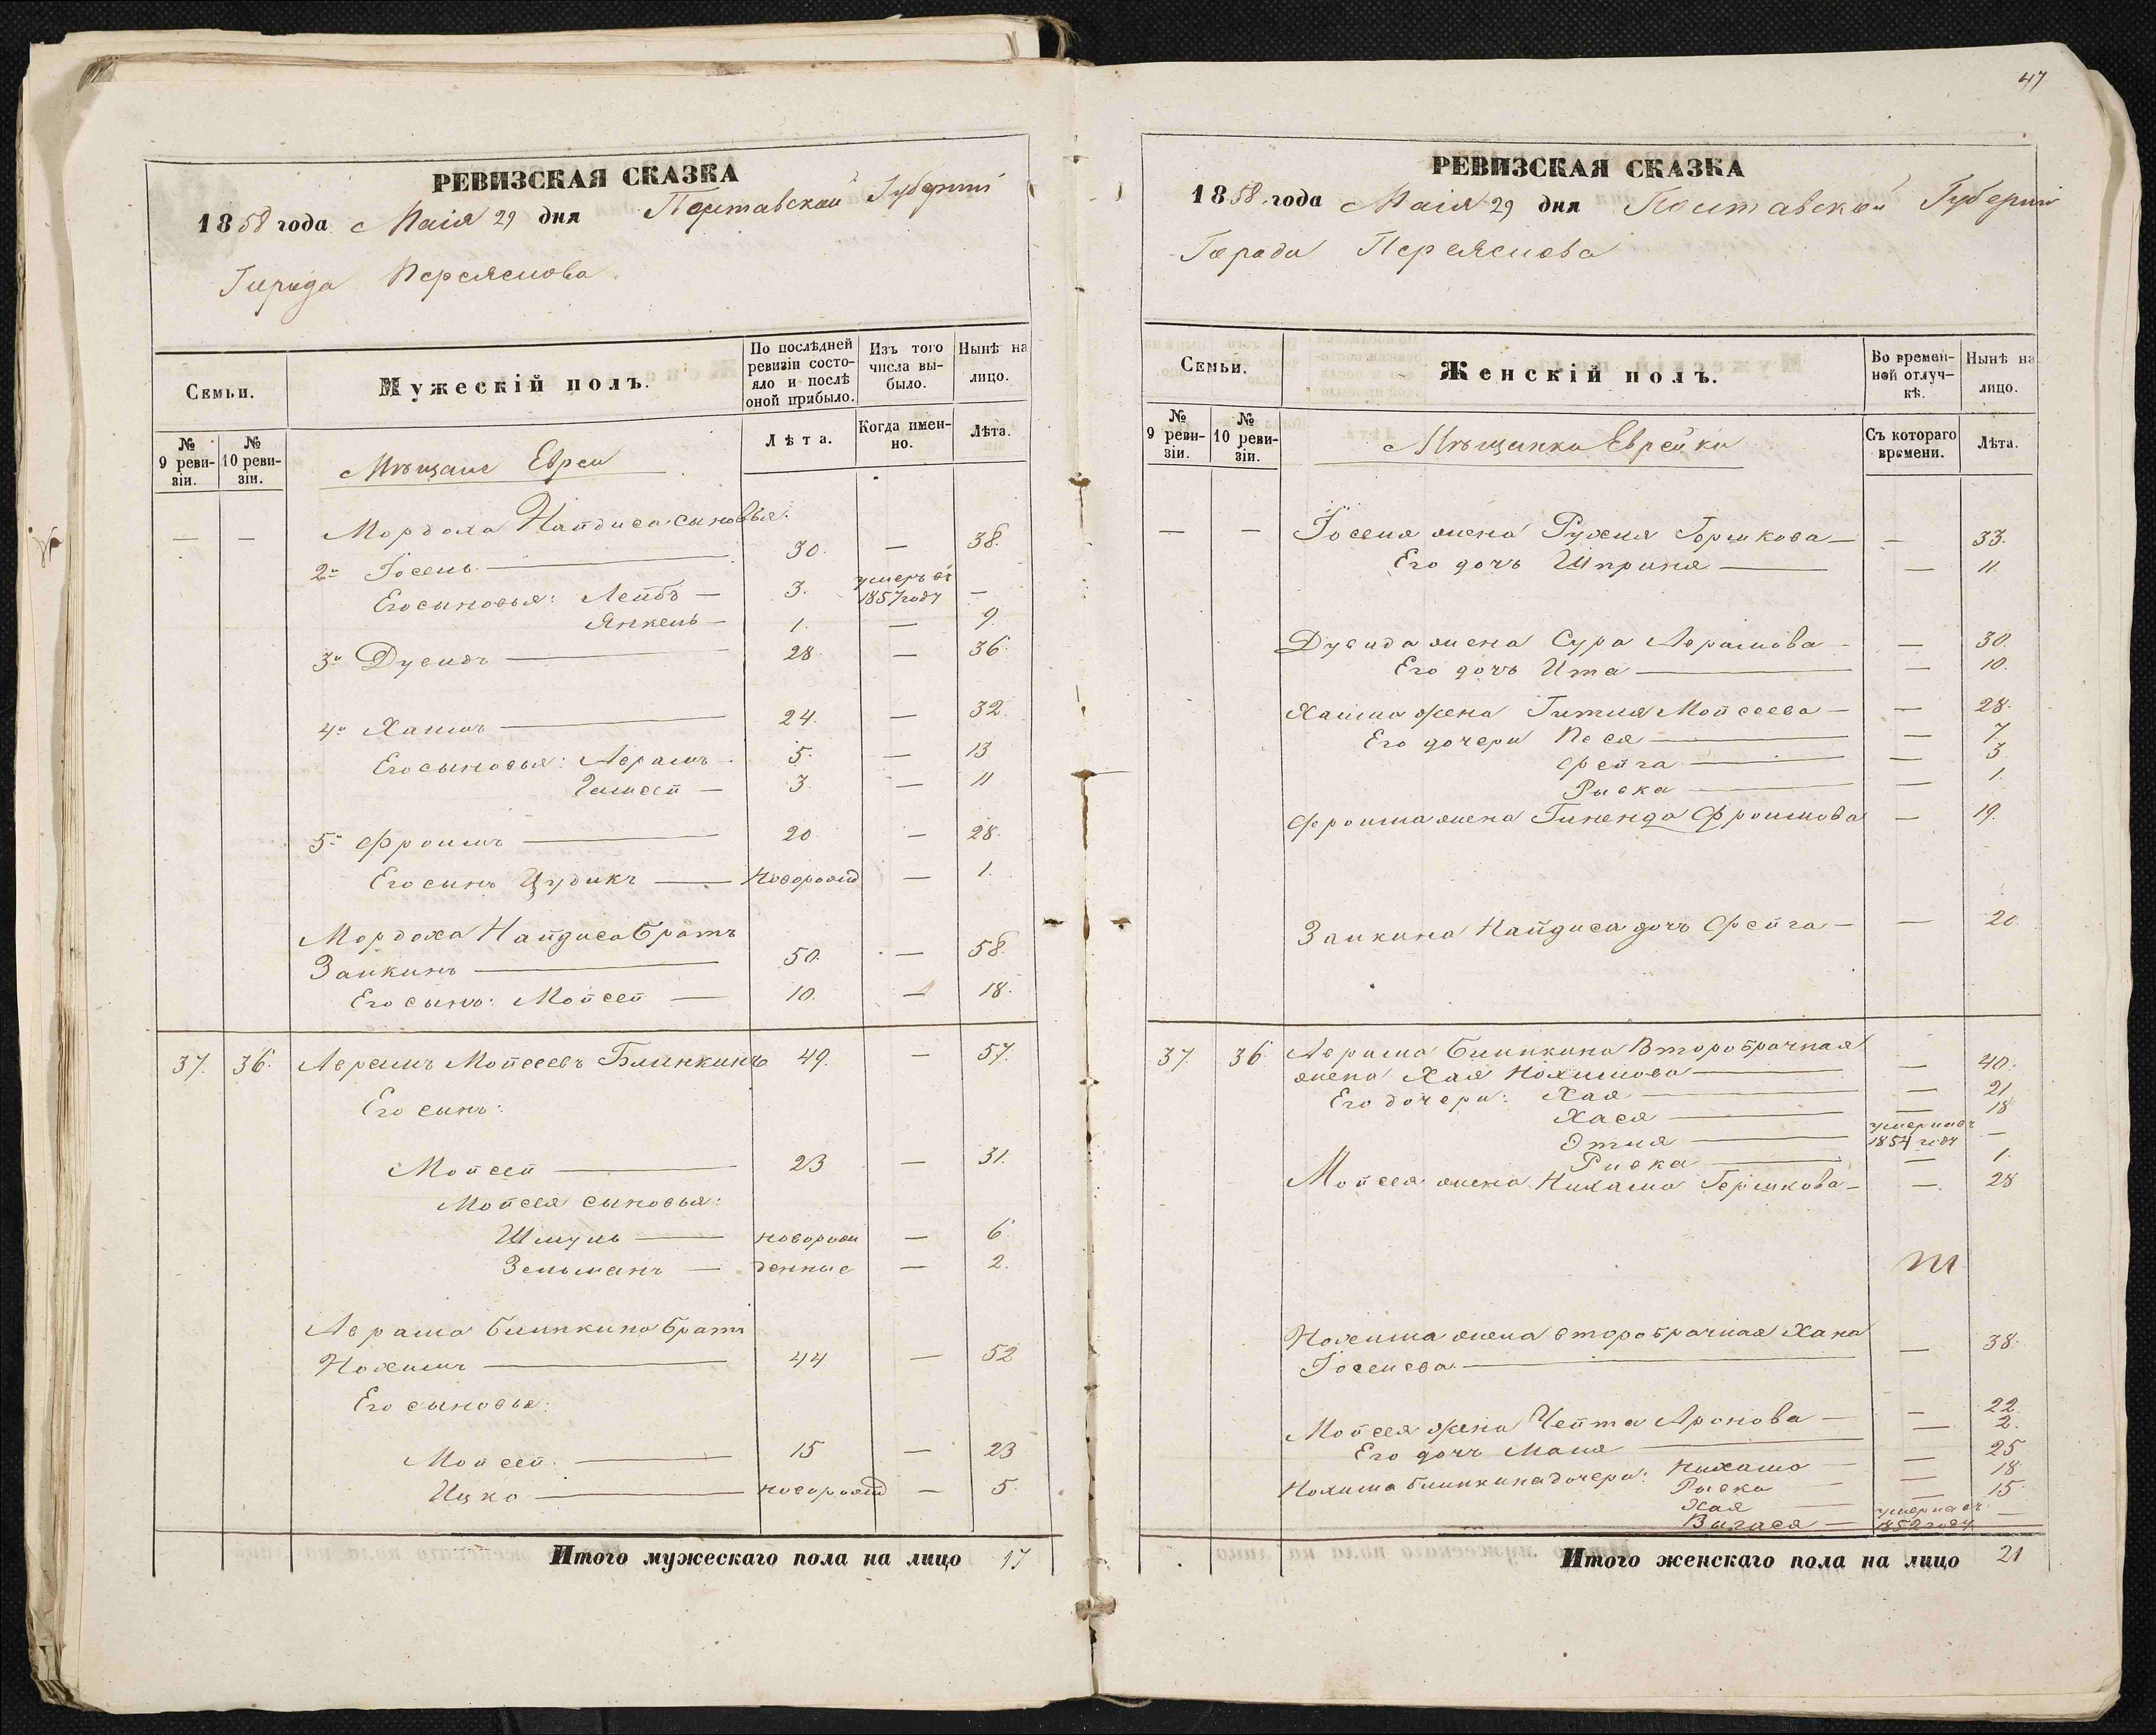 47
РЕВИЗСКАЯ СКАЗКА
1858 года Маія 29 дня Полтавской Губерніи
Города Переяслова
Семьи.
Мужескій полъ.
По послѣдней ревизіи состояло и послѣ оной прибыло.
Изъ того числа выбыло.
Нынѣ на лицо.
№ 9 ревизіи.
№ 10 ревизіи.
Мѣщане Евреи
Лѣта.
Когда именно.
Лѣта.
— — Мордоха Найдиса сыновья:
2й Іосель — 30. — 38.
Его сыновья: Лейбъ — 3. умеръ въ 1857 году —
Янкель — 1. — 9.
3й Дусидъ — 28 — 36.
4й Хаимъ — 24. — 32.
Его сыновья: Аврамъ — 5. — 13
3. — 11
5й Фроимъ — 20 — 28.
Его сынъ Цудикъ — новорожд — 1.
Мордоха Найдиса братъ
Зайкинъ — 50. — 58.
Его сынъ: Мойсей — 10. — 18.
37. 36. Аврамъ Мойсеевъ Блинкинъ 49. — 57.
Его сынъ:
Мойсей — 23 — 31.
Мойсея сыновья:
Шмуль — новорож — 6.
Зельманъ — денные — 2.
Аврама Блинкина братъ
Нохимъ — 44 — 52
Его сыновья:
Мойсей — 15 — 23
Ицко — новорожд — 5.
Итого мужескаго пола на лицо 17
РЕВИЗСКАЯ СКАЗКА
1858 года Маія 29 дня Полтавской Губерніи
Города Переяслова
Семьи.
Женскій полъ.
Во временной отлучкѣ.
Нынѣ на лицо.
№ 9 ревизіи.
№ 10 ревизіи.
Мѣщанки Еврейки
Съ котораго времени.
Лѣта.
— — Іоселя жена Рухля Гершкова — — 33.
Его дочь Шприня — — 11.
Дусида жена Сура Аврамова — — 30.
Его дочь Ита — — 10.
Хаима жена Гитля Мойсеева — — 28.
Его дочери Песя — — 7.
Фейга — — 3.
Рыека — — 1.
Фроима жена Гиненда Фроимова — 19.
Зайкина Найдиса дочь Фейга — — 20
37. 36. Аврама Блинкина второбрачная
жена Хая Нохимова — — 40.
Его дочери: Хая — — 21
Хася — — 18
Этля — умерла въ 1854 году —
Рыека — — 1.
Мойсея жена Нихама Гершкова — — 28
Нохима жена второбрачная Хана
Іоселева — — 38.
Мойсея жена Чейта Аронова — — 22.
Его дочь Маня — — 2.
Нохима Блинкина дочери: Нихама — — 25
Рыека — — 18
Хая — — 15.
умерла въ 1852 году —
Итого женскаго пола на лицо 21